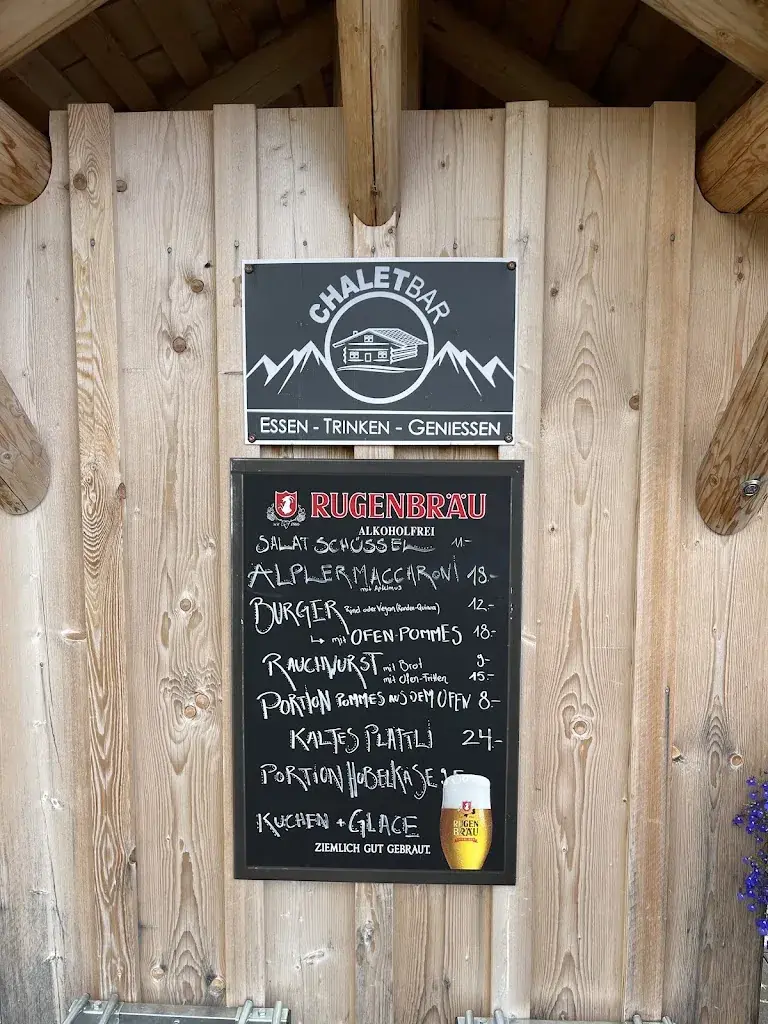 CHALETBAR
ESSEN - TRINKEN - GENIESSEN
RUGENBRÄU
ALKOHOLFREI
SALAT SCHÜSSEL 11.-
ÄLPLERMACCARONI 18.-
mit Apfelmus
BURGER Rind oder Vegan (Randen-Quinoa) 12.-
↳ mit OFEN-POMMES 18.-
RAUCHWURST mit Brot 9.-
mit Ofen-Fritten 15.-
PORTION POMMES AUS DEM OFEN 8.-
KALTES PLÄTTLI 24.-
PORTION HOBELKÄSE
KUCHEN + GLACE
RUGEN
BRÄU
ZIEMLICH GUT GEBRAUT.